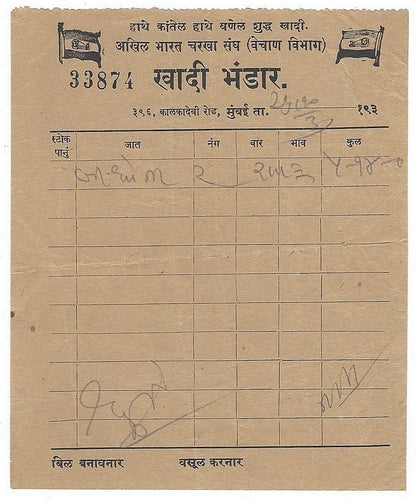 हाथे कांतेल हाथे वणेल शुद्ध खादी.
अखिल भारत चरखा संघ (वेचाण विभाग)
33874 खादी भंडार.
३९६, कालकादेवी रोड, मुंबई ता. १९३
स्टोक पानुं जात नंग वार भाव कुल
૨ ૫-૧૪-૦
बिल बनावनार वसूल करनार